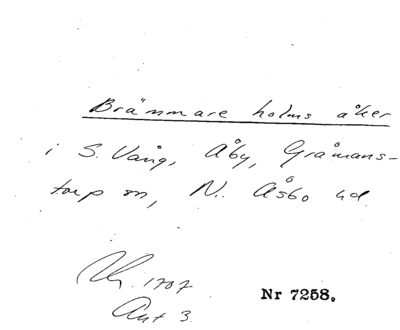 Brämmare holms åker
i S. Vång, Åby, Gråmans-
torp sn, N. Åsbo hd.
1707
Akt 3.
Nr 7258.